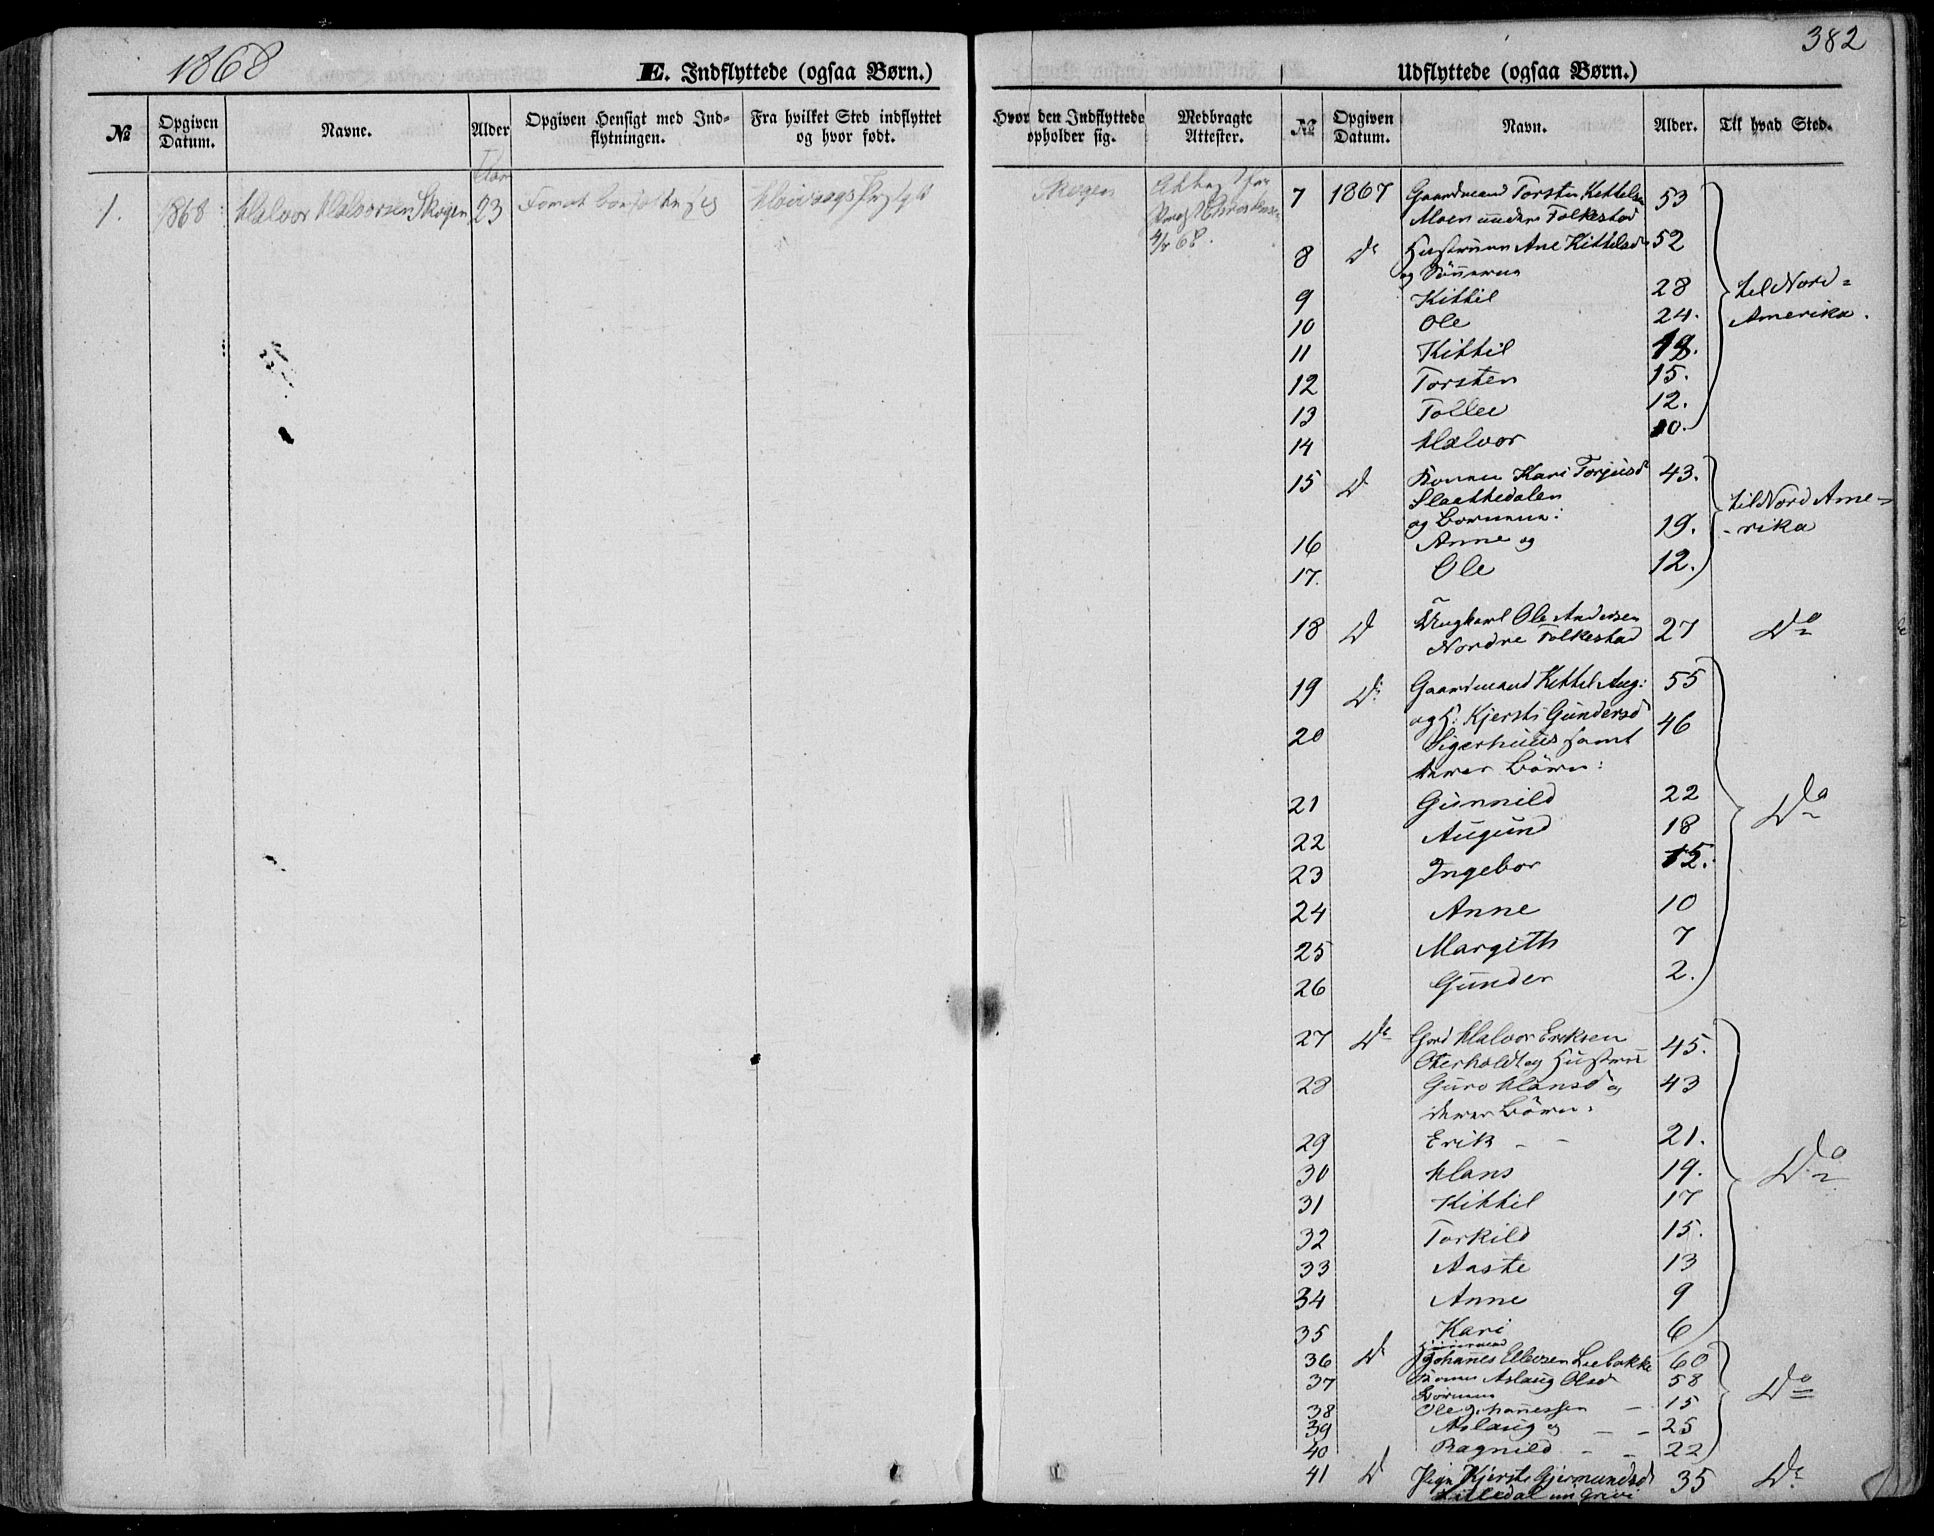 1868
382
E. Indflyttede (ogsaa Børn.)
Udflyttede (ogsaa Børn.)
№
Opgiven Datum.
Navne.
Alder
Opgiven Hensigt med Indflytningen.
Fra hvilket Sted indflyttet og hvor født.
Hvor den Indflyttede opholder sig.
Medbragte Attester.
№
Opgiven Datum.
Navn.
Alder.
Til hvad Sted.
Aar
1. 1868 Halvor Halvorsen Skogen 23
Skogen
4/5 68.
7 1867 Gaardmand Torsten Kettelsen 53
Moen under Folkestad
8 Do Hustruen Ane Kittelsd 52
og Sønnerne
9 Kittil 28 til Nord=
10 Ole 24. Amerika.
11 Kittil 18.
12 Torsten 15.
13 Tollee 12.
14 Halvor 10.
15 D Konen Kari Torjusd 43.
Slaattedalen til Nord Ame=
og Børnene: - rika
16 Anne og 19.
17. Ole 12.
18 D Ungkarl Ole Andersen 27 Do
Nordre Folkestad
19 Do Gaardmand Kittel Aug: 55
20 og H: Kjersti Gundersd 46
samt
deres Børn:
21 Gunnild 22 Do
22 Augund 18
23 Ingebor 12.
24 Anne 10
25 Margith 7
26 Gunder 2.
27 Do Grd Halvor Eriksen 45.
Oterholdt og Hustru
28 Guro Hansd og 43
deres Børn:
29 Erik - - 21.
30 Hans 19. Do
31 Kittil 17
32 Torkild 15.
33 Aaste 13
34 Anne 9
35 Kari 6
36 D Johanes Ellevsen Liebakke 60
37 Konen Aslaug Olsd 58 Do
Børnene
38 Ole Johanessen - 15
39 Aslaug og - - 25
40 Ragnild - - 22
41 D Pigen Kjersti Gjermundsd 35 Do
Lilledal un Grivi